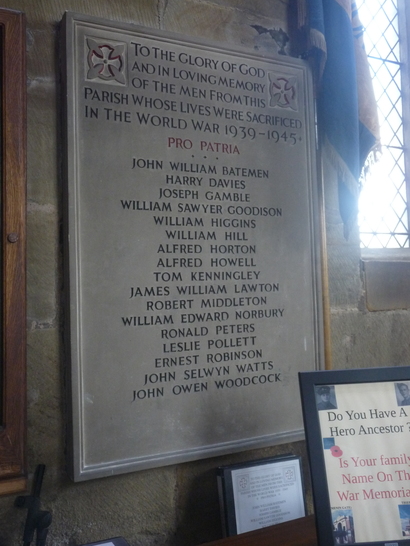 TO THE GLORY OF GOD
AND IN LOVING MEMORY
OF THE MEN FROM THIS
PARISH WHOSE LIVES WERE SACRIFICED
IN THE WORLD WAR 1939-1945.
PRO PATRIA
JOHN WILLIAM BATEMEN
HARRY DAVIES
JOSEPH GAMBLE
WILLIAM SAWYER GOODISON
WILLIAM HIGGINS
WILLIAM HILL
ALFRED HORTON
ALFRED HOWELL
TOM KENNINGLEY
JAMES WILLIAM LAWTON
ROBERT MIDDLETON
WILLIAM EDWARD NORBURY
RONALD PETERS
LESLIE POLLETT
ERNEST ROBINSON
JOHN SELWYN WATTS
JOHN OWEN WOODCOCK
Do You Have A
Hero Ancestor ?
Is Your family
Name On Th
War Memoria